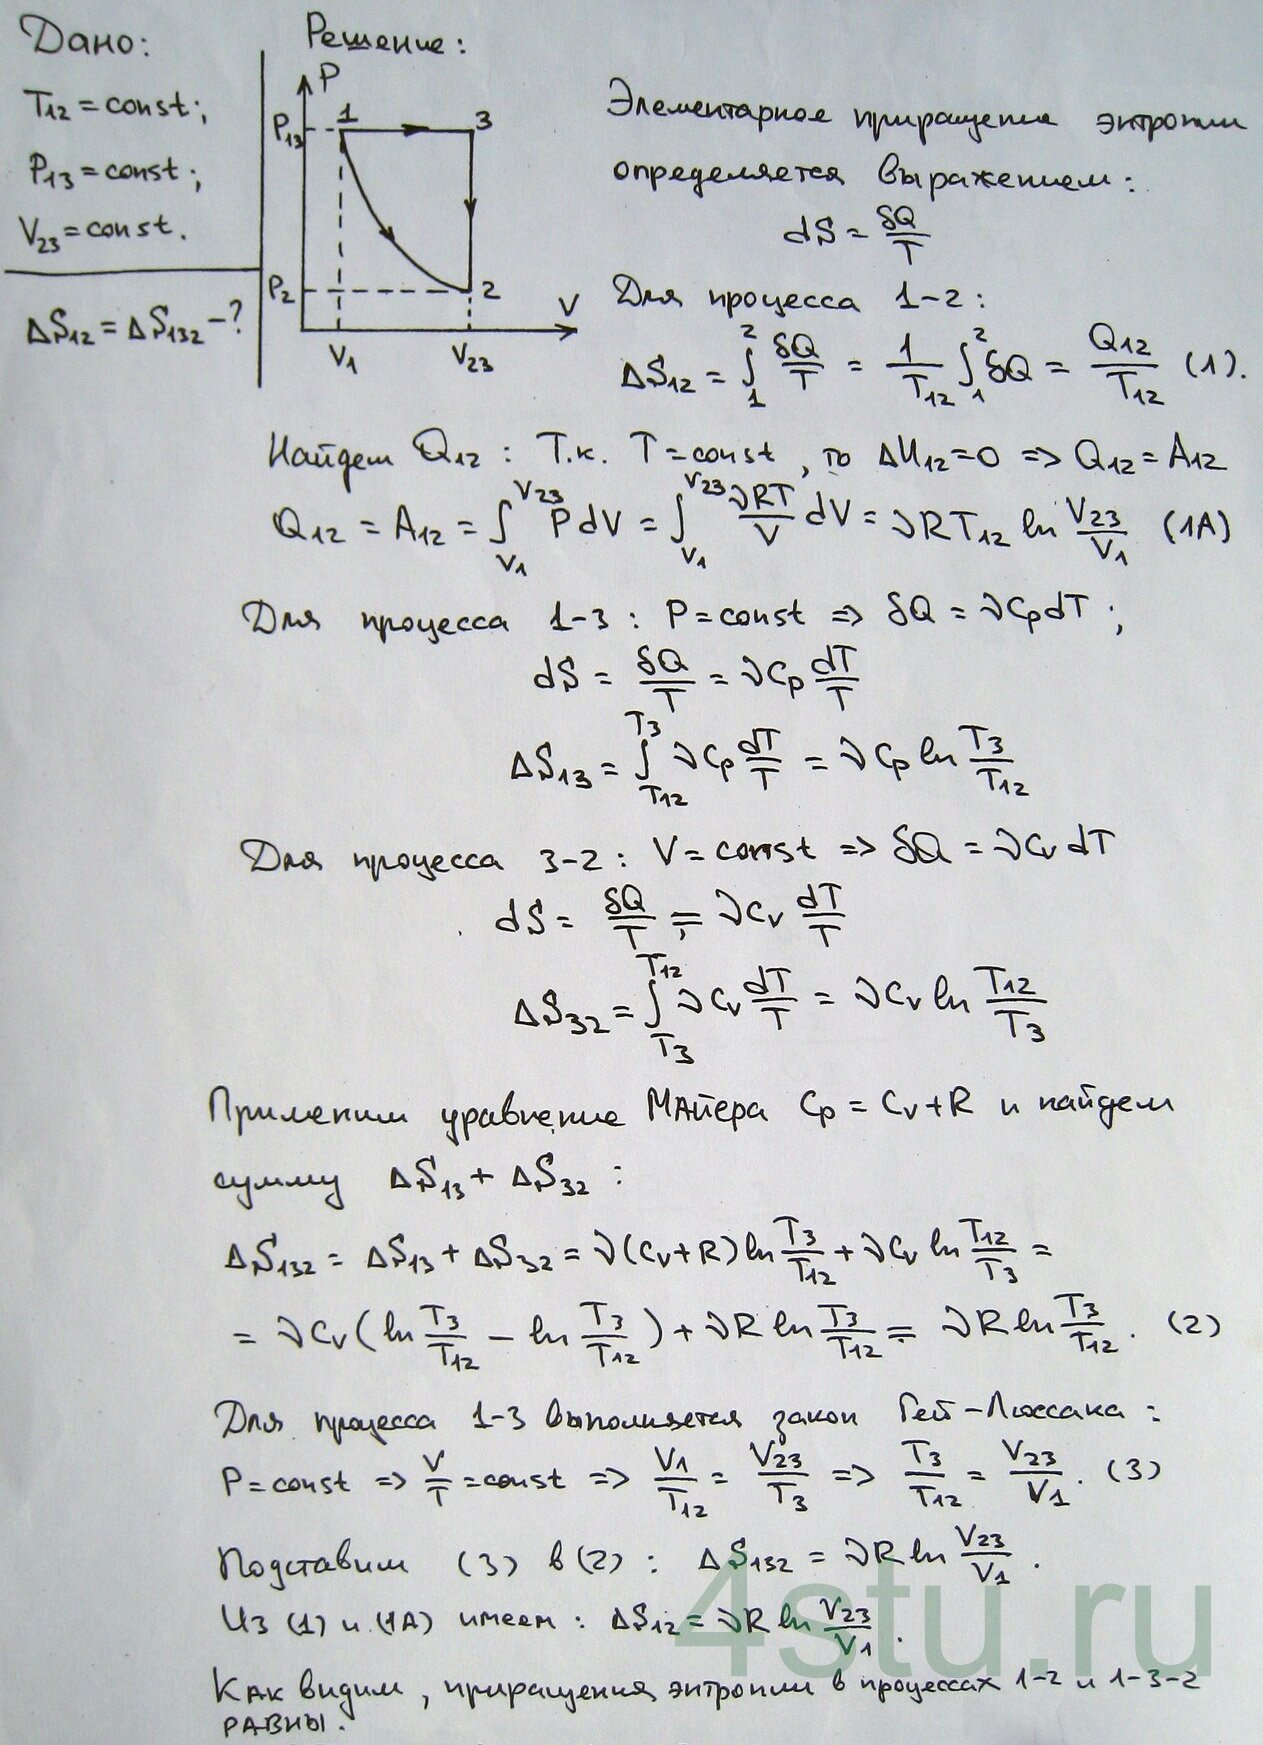 Дано:
T₁₂ = const;
P₁₃ = const;
V₂₃ = const.
ΔS₁₂ = ΔS₁₃₂ - ?
Решение:
P
P₁₃
1
3
P₂
2
V
V₁
V₂₃
Элементарное приращение энтропии
определяется выражением:
dS = δQ/T
Для процесса 1-2:
ΔS₁₂ = ∫₁² δQ/T = 1/T₁₂ ∫₁² δQ = Q₁₂/T₁₂ (1).
Найдем Q₁₂ : Т.к. T = const, то ΔU₁₂ = 0 => Q₁₂ = A₁₂
Q₁₂ = A₁₂ = ∫_{V₁}^{V₂₃} P dV = ∫_{V₁}^{V₂₃} νRT/V dV = νRT₁₂ ln V₂₃/V₁ (1А)
Для процесса 1-3 : P = const => δQ = νCp dT ;
dS = δQ/T = νCp dT/T
ΔS₁₃ = ∫_{T₁₂}^{T₃} νCp dT/T = νCp ln T₃/T₁₂
Для процесса 3-2 : V = const => δQ = νCv dT
dS = δQ/T = νCv dT/T
ΔS₃₂ = ∫_{T₃}^{T₁₂} νCv dT/T = νCv ln T₁₂/T₃
Применим уравнение Майера Cp = Cv + R и найдем
сумму ΔS₁₃ + ΔS₃₂ :
ΔS₁₃₂ = ΔS₁₃ + ΔS₃₂ = ν(Cv+R) ln T₃/T₁₂ + νCv ln T₁₂/T₃ =
= νCv (ln T₃/T₁₂ - ln T₃/T₁₂) + νR ln T₃/T₁₂ = νR ln T₃/T₁₂. (2)
Для процесса 1-3 выполняется закон Гей-Люссака :
P = const => V/T = const => V₁/T₁₂ = V₂₃/T₃ => T₃/T₁₂ = V₂₃/V₁. (3)
Подставим (3) в (2) : ΔS₁₃₂ = νR ln V₂₃/V₁.
Из (1) и (1А) имеем : ΔS₁₂ = νR ln V₂₃/V₁.
Как видим, приращения энтропии в процессах 1-2 и 1-3-2
РАВНЫ.
4stu.ru